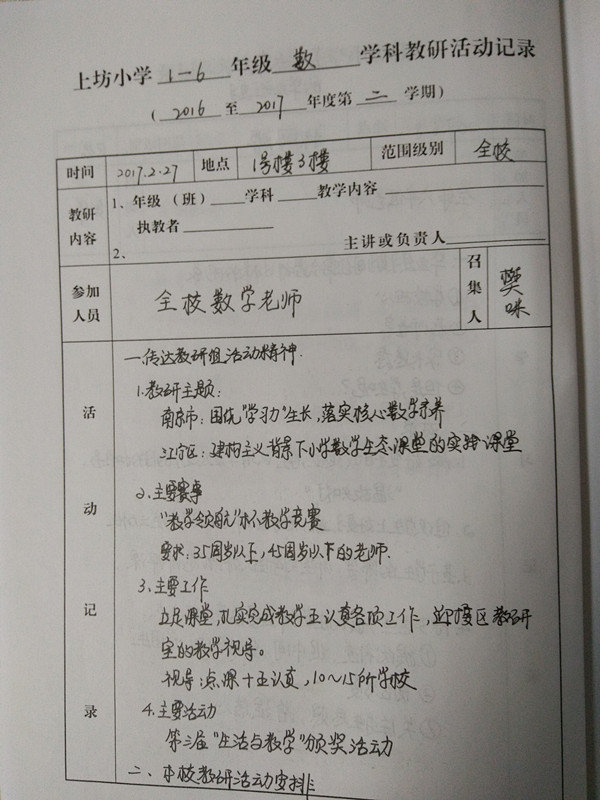 上坊小学 1-6 年级 数 学科教研活动记录
( 2016 至 2017 年度第 二 学期)
时间 2017.2.27 地点 1号楼3楼 范围级别 全校
教研内容 1、年级(班) 学科 教学内容
执教者
2、 主讲或负责人
参加人员 全校数学老师 召集人 樊咏
活动记录
一.传达教研组活动精神.
1.教研主题:
南京市:围绕"学习力"生长,落实核心数学素养
江宁区:建构主义背景下小学数学生态课堂的实践课堂
2.主要赛事
"教学领航"杯教学竞赛
要求:35周岁以下,45周岁以下的老师.
3.主要工作
立足课堂,扎实完成教学五认真各项工作,迎接区教研
室的教学视导。
视导:点课+五认真,10~15所学校
4.主要活动
第三届"生活与数学"颁奖活动
二、本校教研活动安排